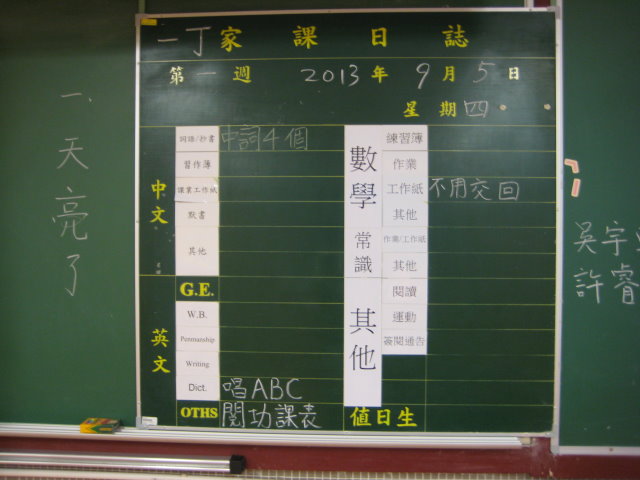 一丁家課日誌
第一週 2013年9月5日
星期四
中文
詞語/抄書 中詞4個
習作簿
課業工作紙
默書
其他
G.E.
英文
W.B.
Penmanship
Writing
Dict. 唱ABC
OTHS 閱功課表
數學
練習簿
作業
工作紙 不用交回
其他
常識
作業/工作紙
其他
其他
閱讀
運動
簽閱通告
值日生
一、天亮了
吳宇
許睿